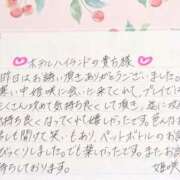 ホテルハイランドの貴方様
昨日はお誘い頂きありがとうございました。
寒い中姫咲に会いに来てくれて、プレイでは
たくさん攻めて気持ち良くして頂き、
気持ち良くなってくれて嬉しかったです。色んなお
も聞けて笑いもあり、ペットボトルのお
びっくりしましたが、でも楽しかったです。またお
待ちしております。 姫咲